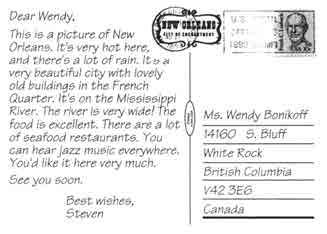 Dear Wendy,
This is a picture of New
Orleans. It's very hot here,
and there's a lot of rain. It's a
very beautiful city with lovely
old buildings in the French
Quarter. It's on the Mississippi
River. The river is very wide! The
food is excellent. There are a lot
of seafood restaurants. You
can hear jazz music everywhere.
You'd like it here very much.
See you soon.
Best wishes,
Steven
NEW ORLEANS
CITY OF ENCHANTMENT
Ms. Wendy Bonikoff
14160 S. Bluff
White Rock
British Columbia
V42 3E6
Canada